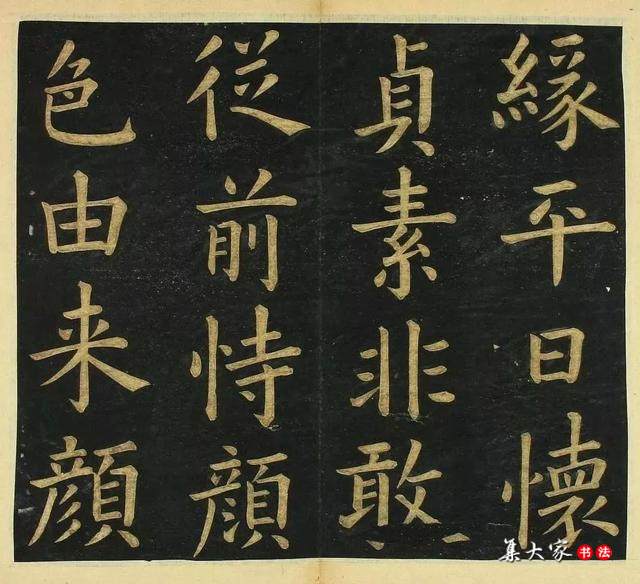 緣平日懷
貞素非敢
從前恃顔
色由来顔
集大家书法